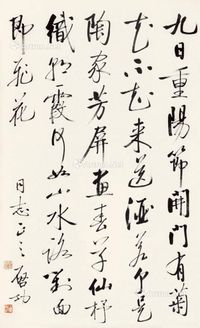 九日重陽節開門有菊
花不知来送酒若个是
陶家芳屏畫春草仙杼
織朝霞何如山水路對面
即飛花
同志正之 啓功